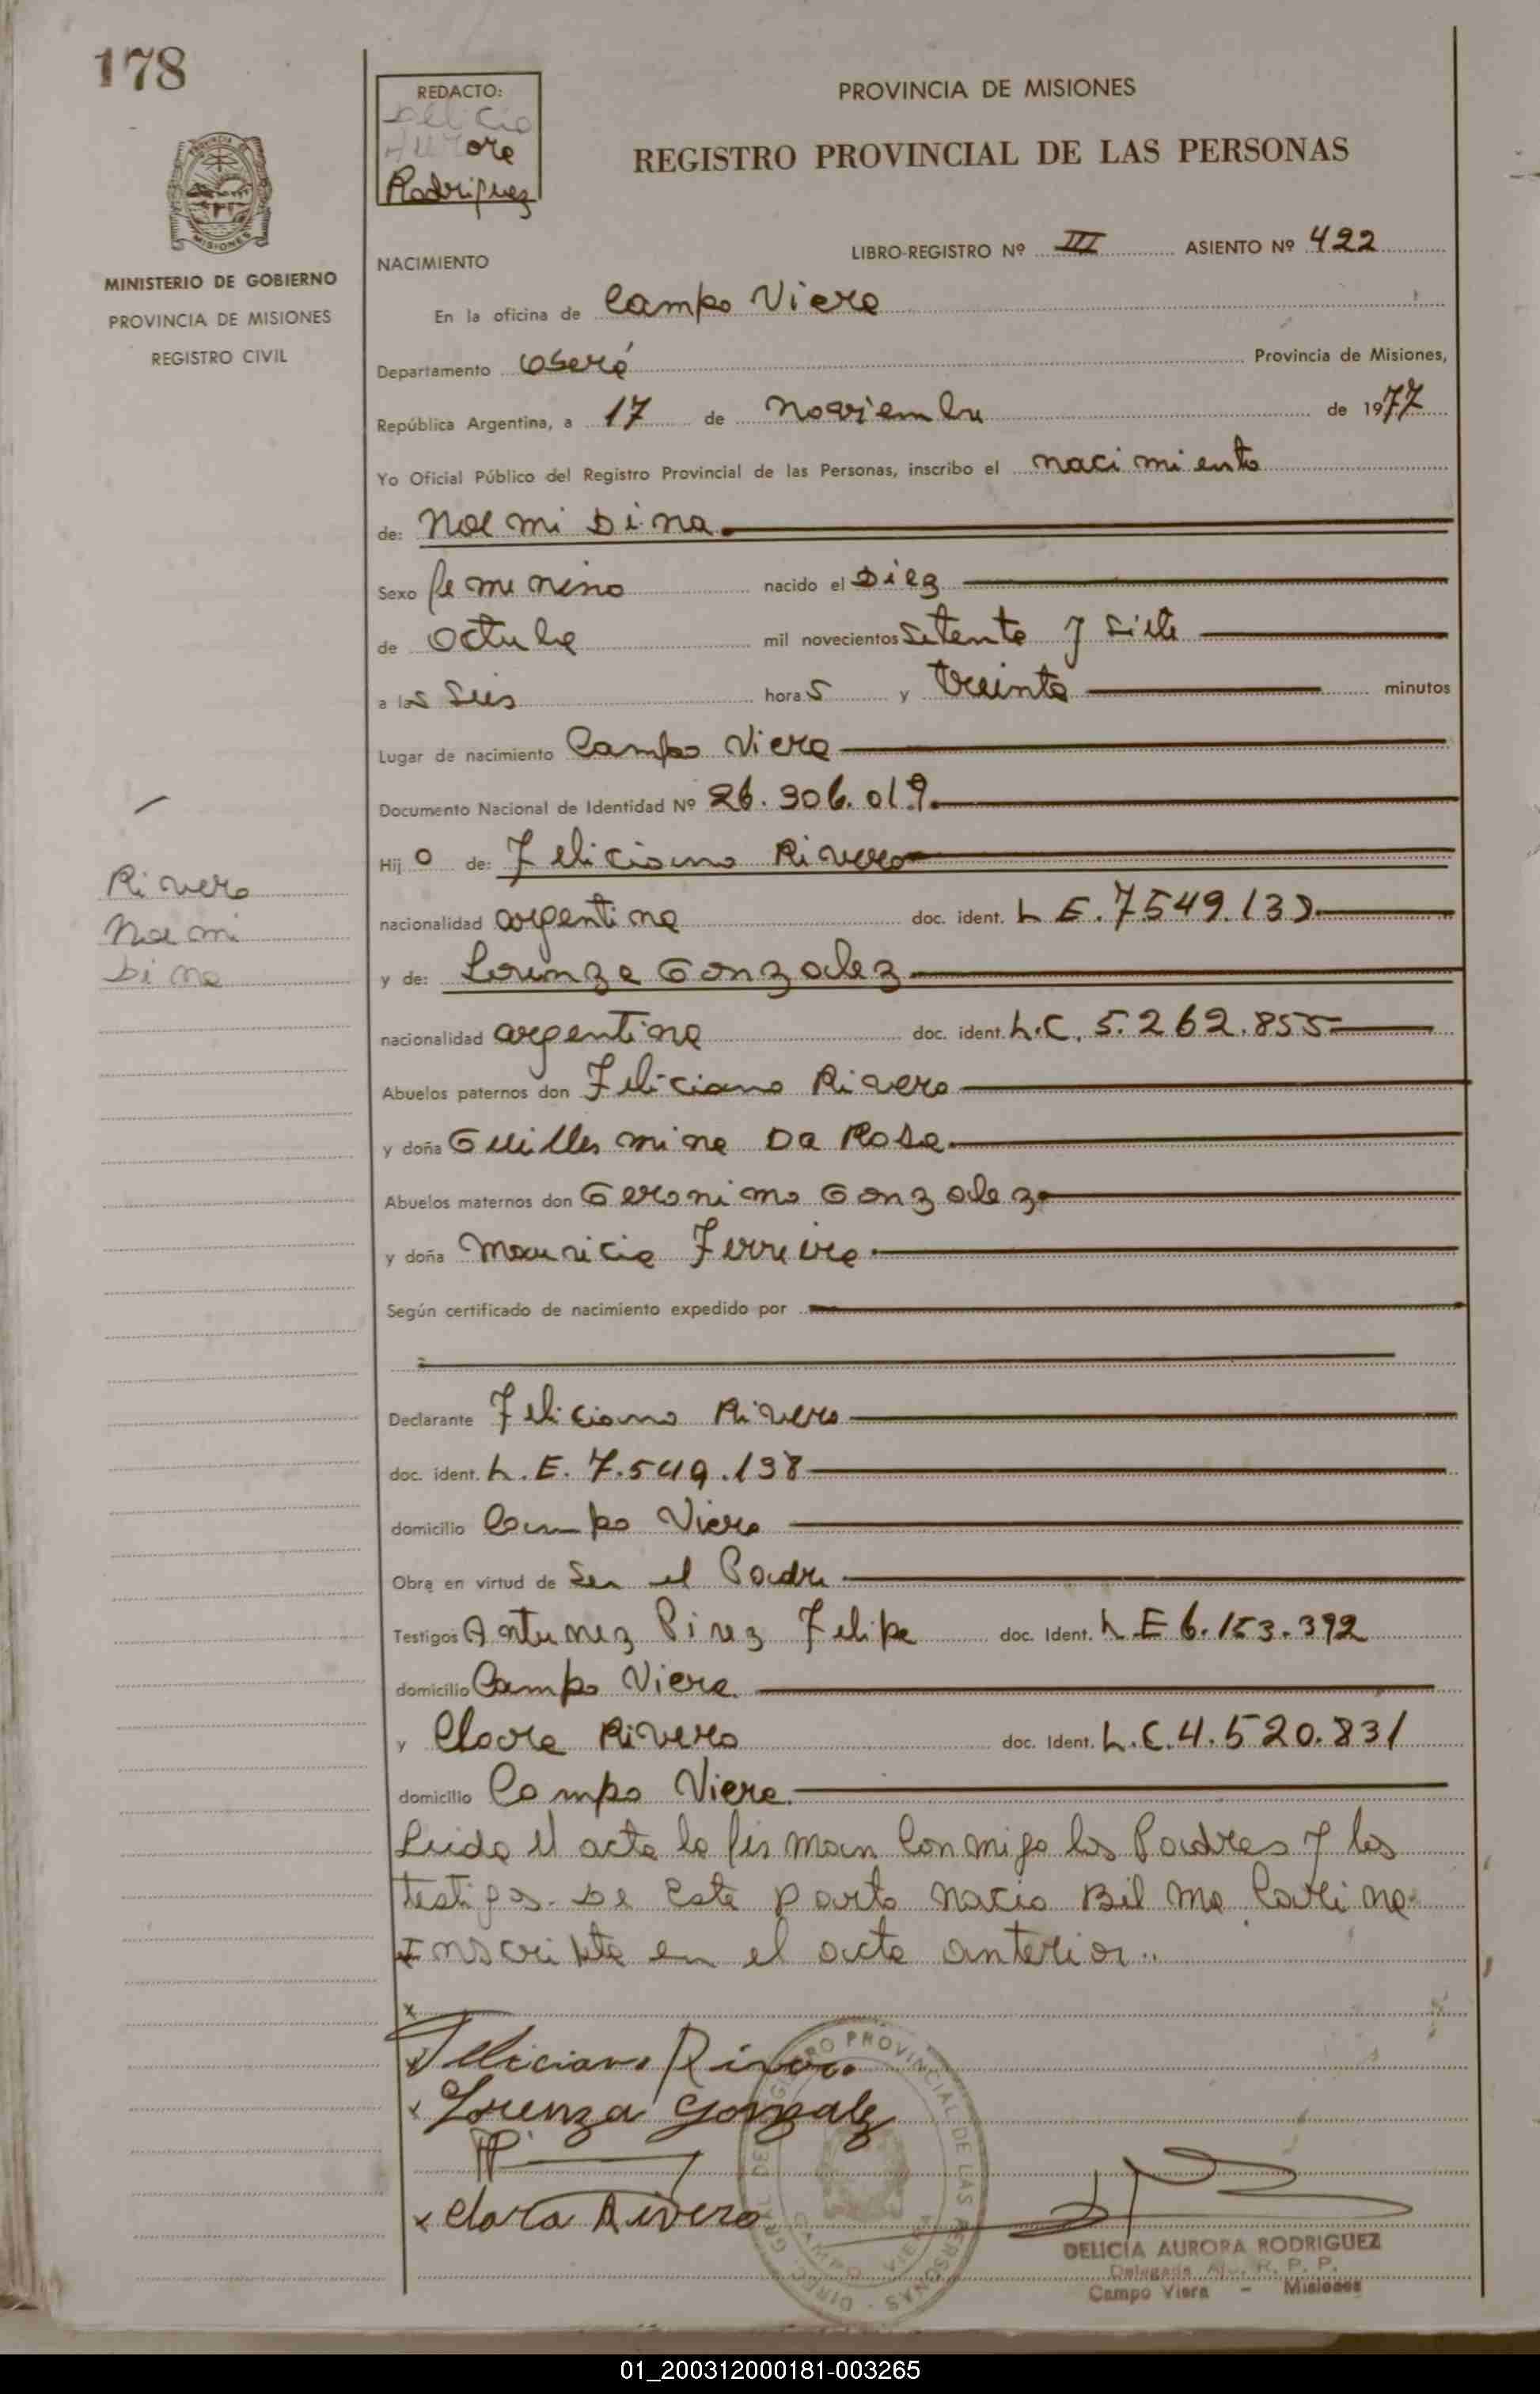 178
REDACTO:
Delicia
Aurora
Rodriguez
PROVINCIA DE MISIONES
REGISTRO PROVINCIAL DE LAS PERSONAS
MINISTERIO DE GOBIERNO
PROVINCIA DE MISIONES
REGISTRO CIVIL
NACIMIENTO
LIBRO-REGISTRO Nº III ASIENTO Nº 422
En la oficina de Campo Viera
Departamento Oberá Provincia de Misiones,
República Argentina, a 17 de noviembre de 1977
Yo Oficial Público del Registro Provincial de las Personas, inscribo el nacimiento
de: Noemi Dina
Sexo femenino nacido el Diez
de Octubre mil novecientos setenta y siete
a las seis horas y treinta minutos
Lugar de nacimiento Campo Viera
Documento Nacional de Identidad Nº 26.306.019
Hijo de: Feliciano Rivero
Rivero
Noemi
Dina
nacionalidad argentina doc. ident. L E. 7549.13
y de: Lorenza Gonzalez
nacionalidad argentina doc. ident. L.C. 5.262.855
Abuelos paternos don Feliciano Rivero
y doña Guillermina Da Rosa
Abuelos maternos don Geronimo Gonzalez
y doña Mauricia Ferreira
Según certificado de nacimiento expedido por
Declarante Feliciano Rivero
doc. ident. L.E. 7.549.138
domicilio Campo Viera
Obra en virtud de Ser el Padre
Testigos Antunez Pirez Felipe doc. Ident. L E 6.153.392
domicilio Campo Viera
y Clara Rivero doc. Ident. L.C. 4.520.831
domicilio Campo Viera
Leida el acta la firman conmigo los Padres y los
testigos. De este parto nacio Bilma Carina
Inscripta en el acta anterior..
Feliciano Rivero
Lorenza Gonzalez
Clara Rivero
DIREC. GRAL. DEL REGISTRO PROVINCIAL DE LAS PERSONAS
CAMPO VIERA
DELICIA AURORA RODRIGUEZ
Delegada R. P. P.
Campo Viera - Misiones
01_200312000181-003265